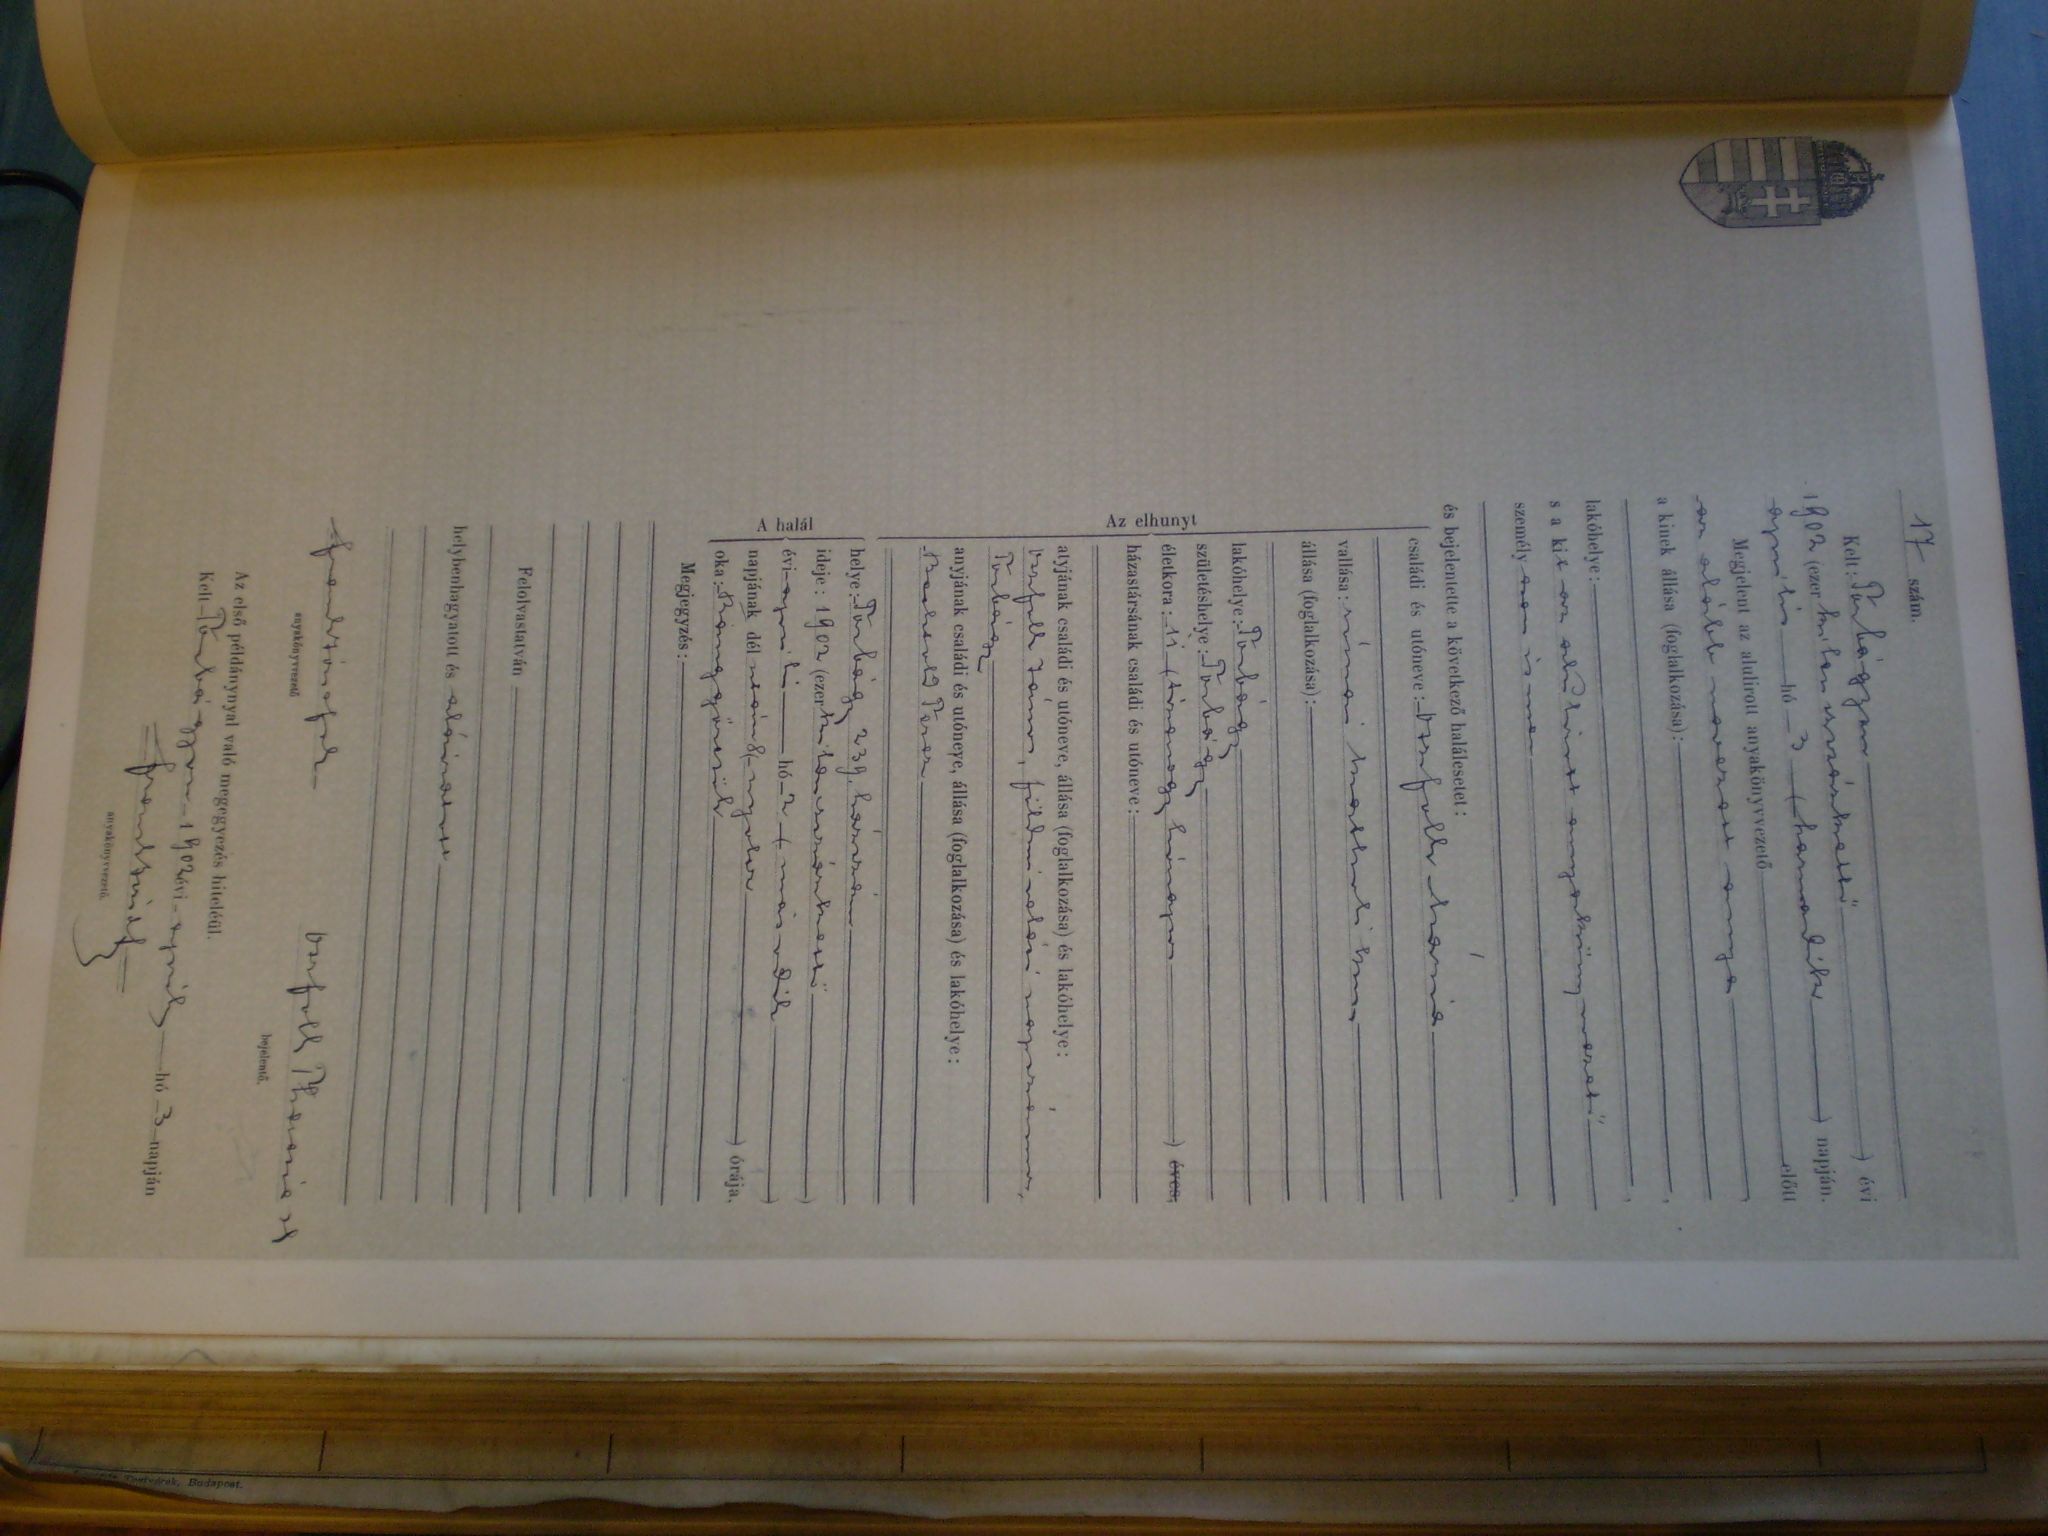 17 szám.
Kelt: Torbágyon
1902 (ezer kilenczszázkettő ) évi
április hó 3 (harmadik ) napján.
Megjelent az alulirott anyakönyvvezető előtt
az alább nevezett anya
a kinek állása (foglalkozása):
lakóhelye:
s a kit az alulirott anyakönyvvezető
személyesen ismer
és bejelentette a következő halálesetet:
családi és utóneve: Mária
vallása: római katholikus
állása (foglalkozása):
Az elhunyt
lakóhelye: Torbágy
születéshelye: Torbágy
életkora: 11 (tizenegy hónapos ) éves.
házastársának családi és utóneve:
atyjának családi és utóneve, állása (foglalkozása) és lakóhelye:
János, földmívelési napszámos,
Torbágy
anyjának családi és utóneve, állása (foglalkozása) és lakóhelye:
Teréz
A halál
helye: Torbágy 239. házszám
ideje: 1902 (ezer kilenczszázkettő )
évi április hó 2 (második )
napjának dél után 8 (nyolcz ) órája.
oka: Rángógörcsök
Megjegyzés:
Felolvastatván
helybenhagyatott és aláíratott
anyakönyvvezető
bejelentő.
Az első példánynyal való megegyezés hiteléül.
Kelt Torbágyon 1902 évi április hó 3 napján
anyakönyvvezető.
Testvérek, Budapest.